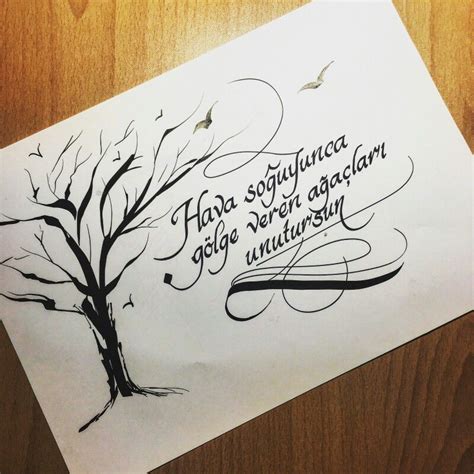 Hava soğuyunca
gölge veren ağaçları
unutursun